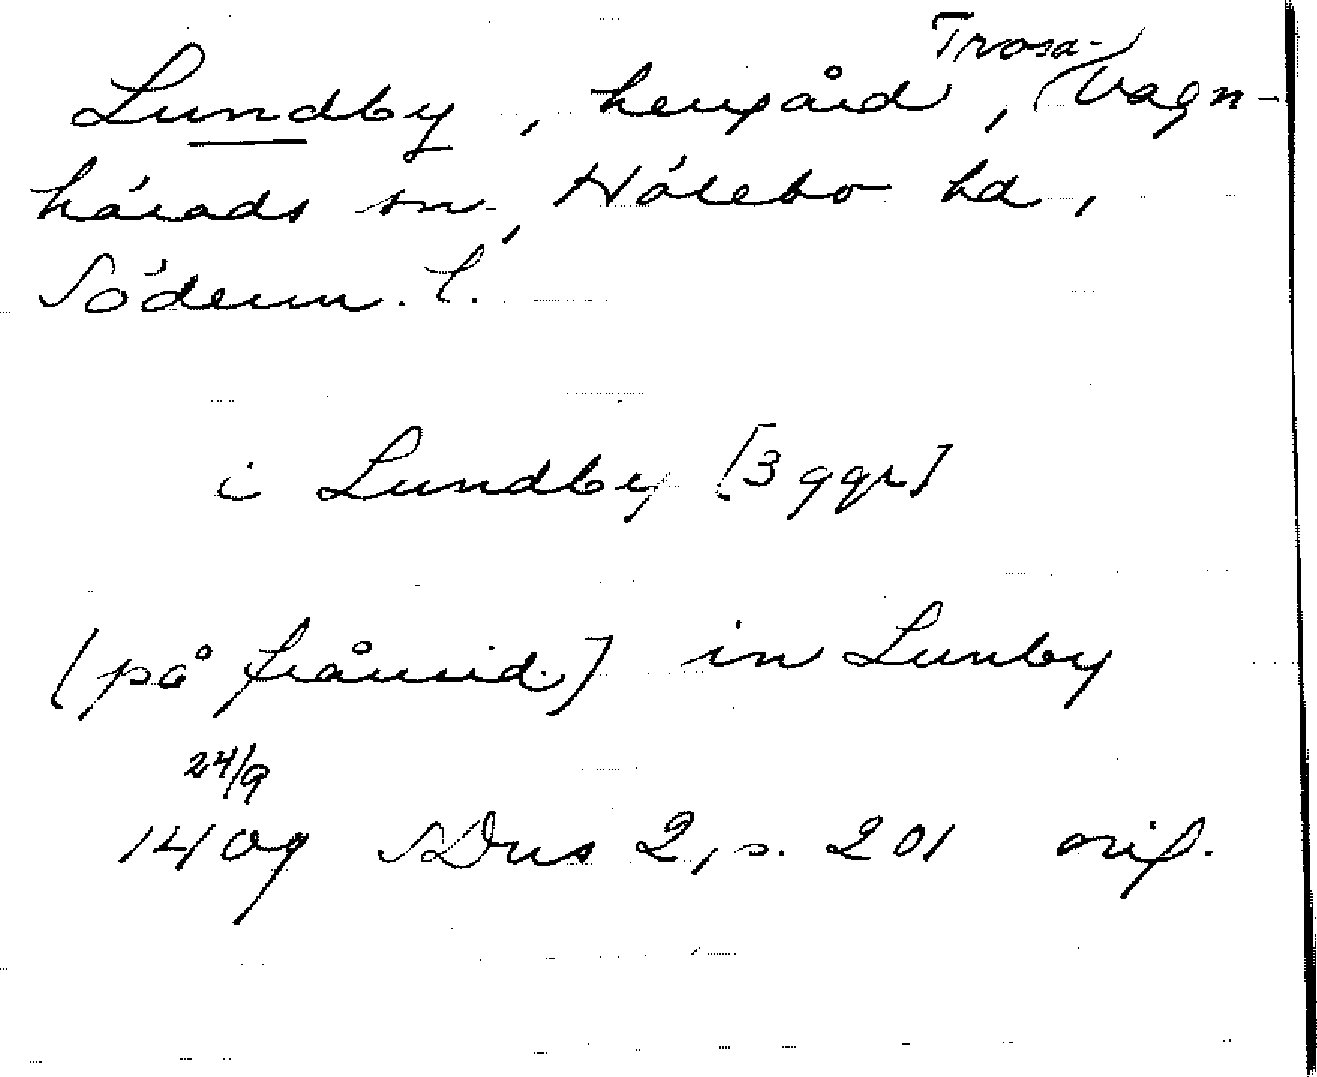 Lundby, herrgård, Trosa-Vagn-
härads sn, Hölebo hd,
Söderm. l.
i Lundby [3 ggr]
[på frånsid.] in Lunby
24/9
1409 SDns 2, s. 201 orig.